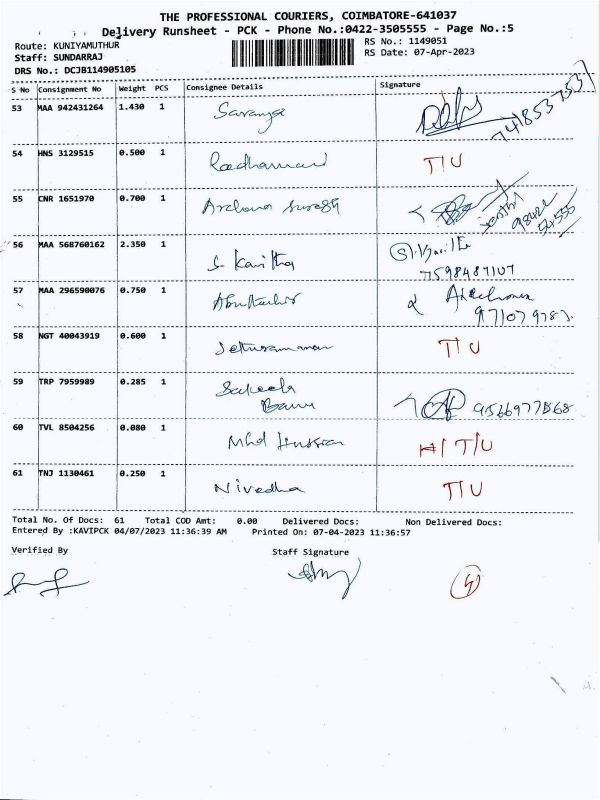 THE PROFESSIONAL COURIERS, COIMBATORE-641037
Delivery Runsheet - PCK - Phone No.:0422-3505555 - Page No.:5
Route: KUNIYAMUTHUR
RS No.: 1149051
Staff: SUNDARRAJ
RS Date: 07-Apr-2023
DRS No.: DCJB114905105
S No Consignment No Weight PCS Consignee Details Signature
53 MAA 942431264 1.430 1 Saranya
54 HNS 3129515 0.500 1 T/U
55 CNR 1651970 0.700 1 Archana Suresh
56 MAA 568760162 2.350 1 S. Kavitha
7598487107
57 MAA 296590076 0.750 1
58 NGT 40043919 0.600 1 Sethuramman T/U
59 TRP 7959989 0.285 1 Sakeela
Banu
60 TVL 8504256 0.080 1 Mhd Hussian T/U
61 TNJ 1130461 0.250 1 Nivedha T/U
Total No. Of Docs: 61 Total COD Amt: 0.00 Delivered Docs: Non Delivered Docs:
Entered By :KAVIPCK 04/07/2023 11:36:39 AM Printed On: 07-04-2023 11:36:57
Verified By Staff Signature